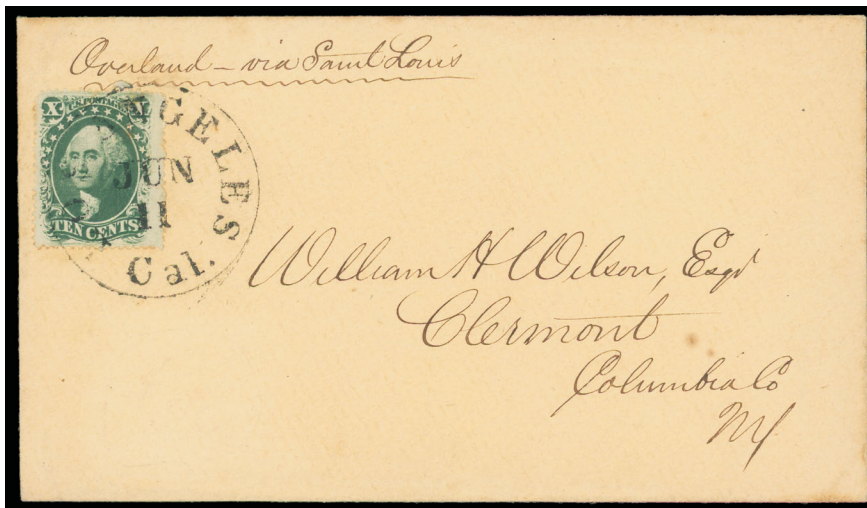 Overland - via Saint Louis
X U.S. POSTAGE X
TEN CENTS
NGELES
JUN
11
Cal.
William H Wilson, Esqr
Clermont
Columbia Co
NY